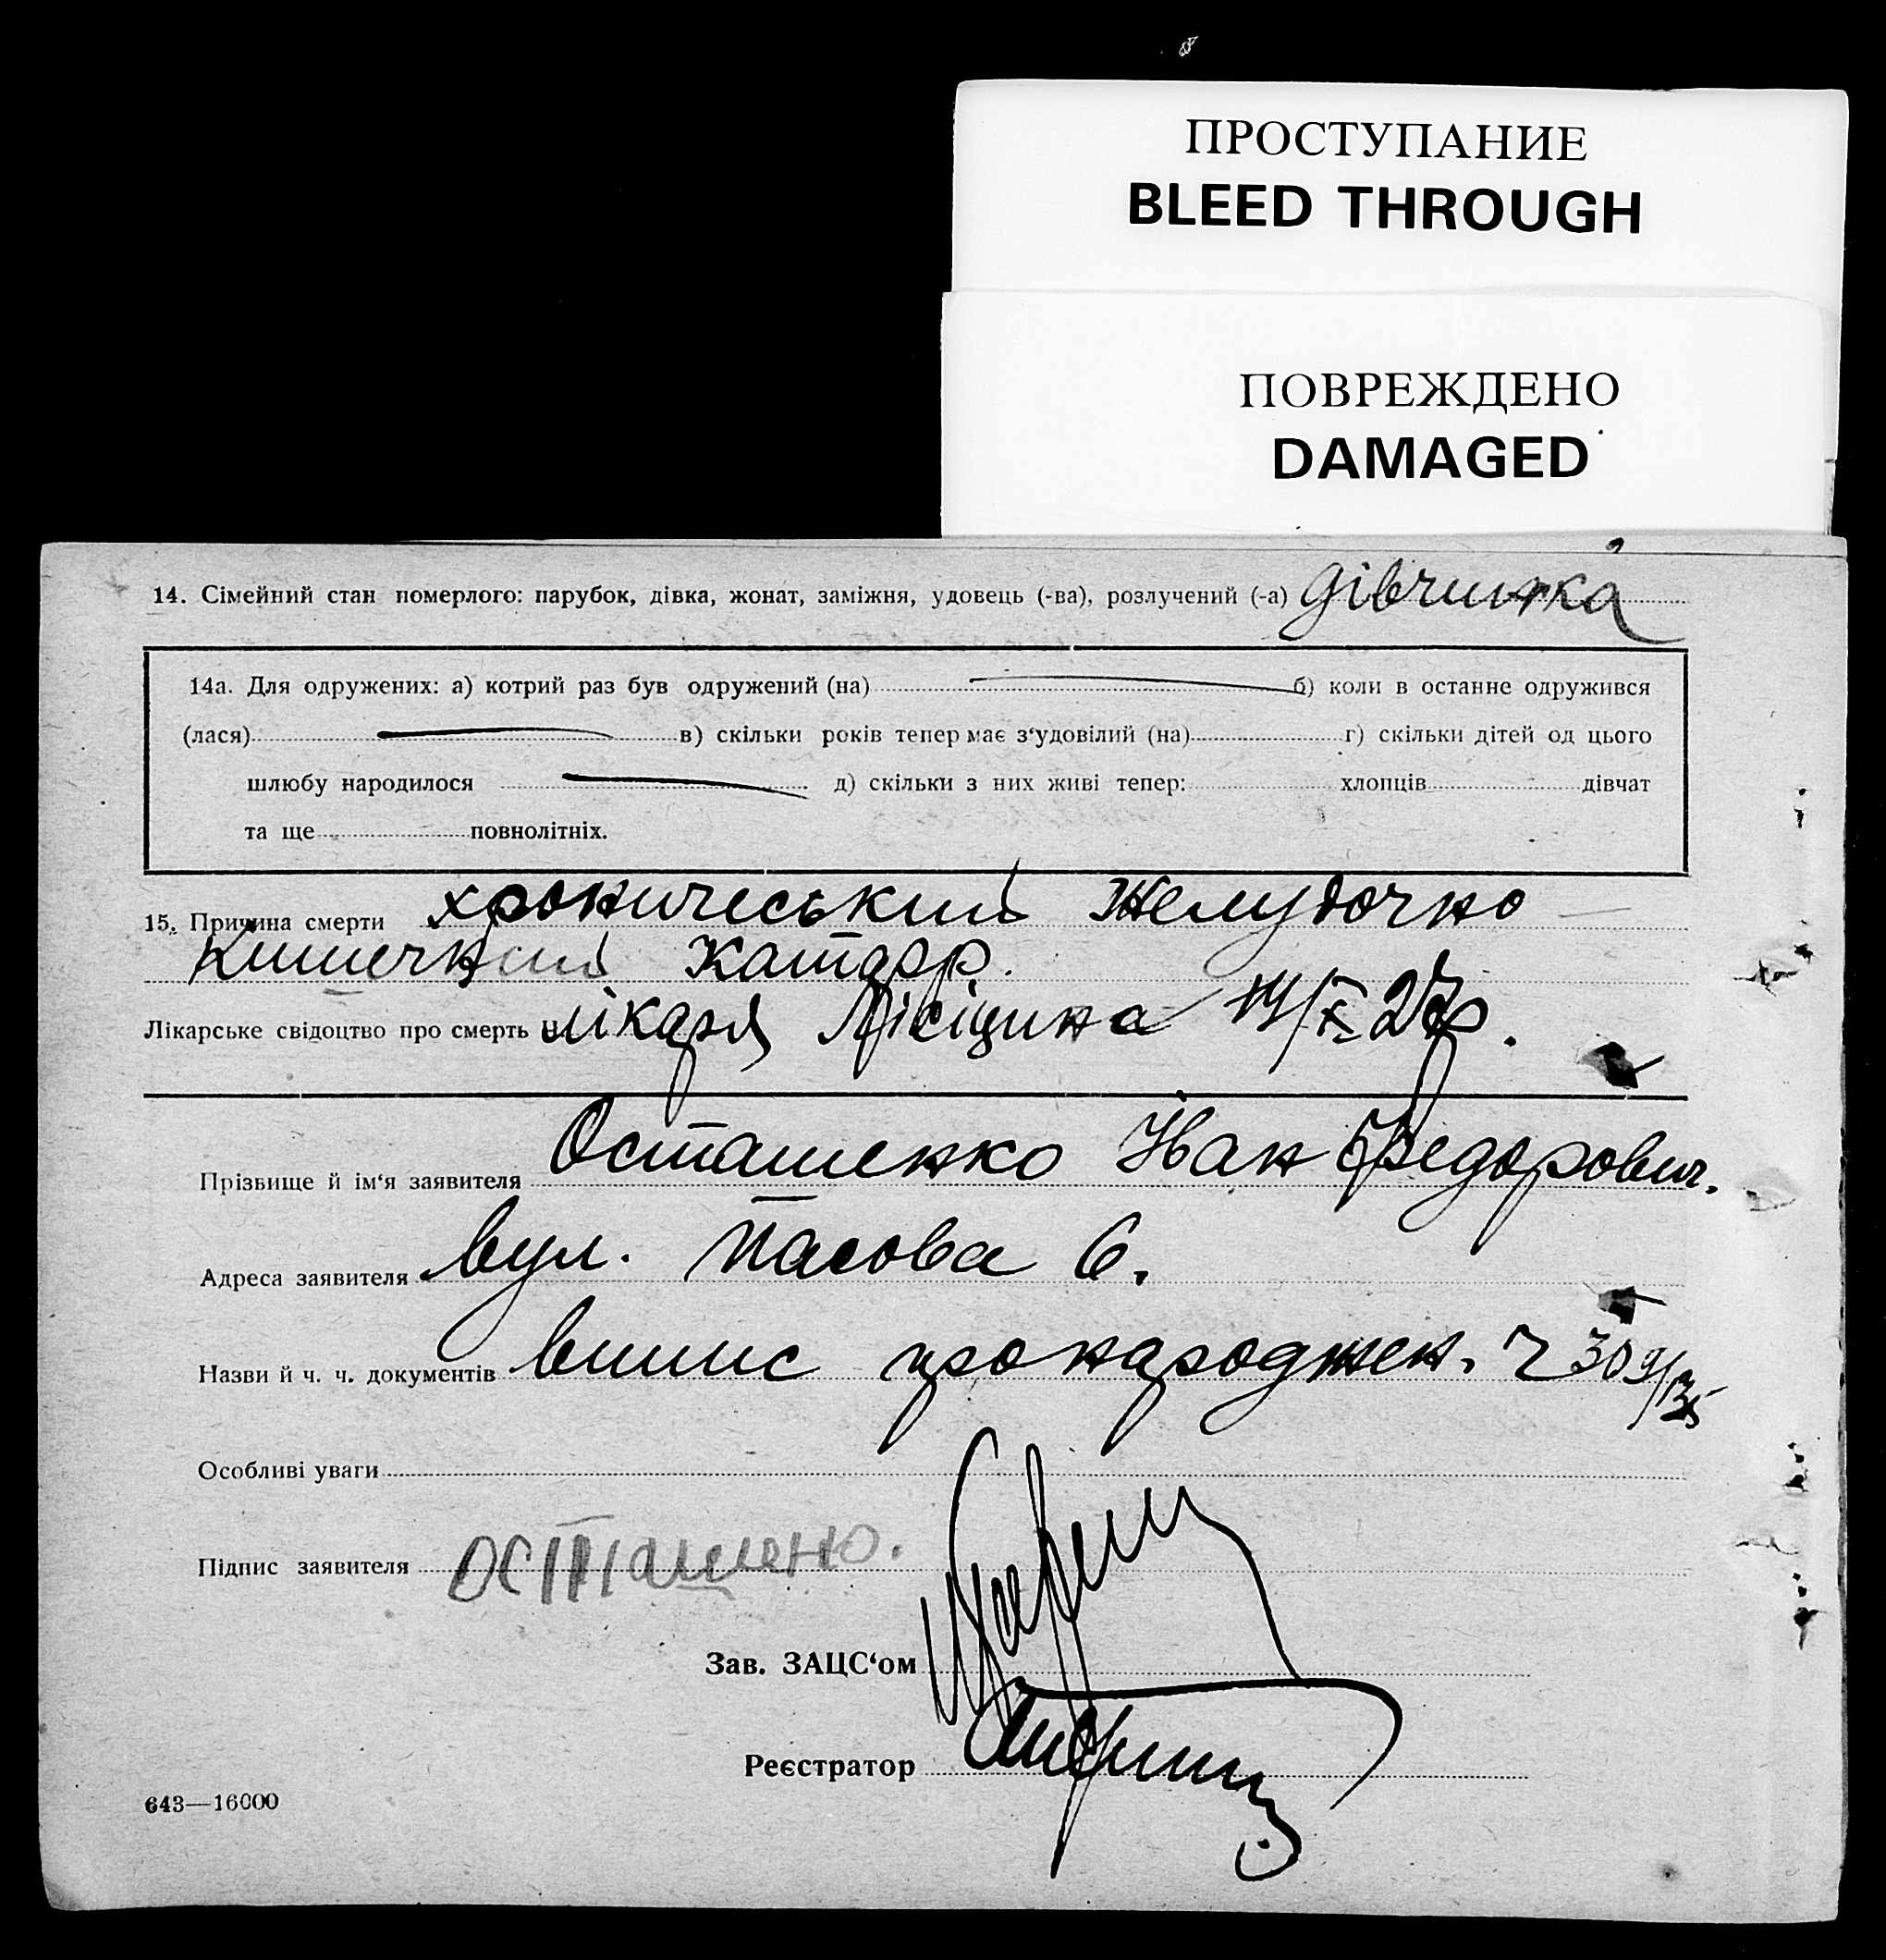 ПРОСТУПАНИЕ
BLEED THROUGH
ПОВРЕЖДЕНО
DAMAGED
14. Сімейний стан померлого: парубок, дівка, жонат, заміжня, удовець (-ва), розлучений (-а) дівчинка
14а. Для одружених: а) котрий раз був одружений (на) б) коли в останнє одружився
(лася) в) скільки років тепер має з‘удовілий (на) г) скільки дітей од цього
шлюбу народилося д) скільки з них живі тепер: хлопців дівчат
та ще повнолітніх.
15. Причина смерти хроничеський желудочно
кишечний катарр.
Лікарське свідоцтво про смерть лікаря Лісіцина
Прізвище й ім‘я заявителя Осташенко Іван Федорович.
Адреса заявителя вул. 6.
Назви й ч. ч. документів випис про народжен. Ч 309/
Особливі уваги
Підпис заявителя
Зав. ЗАЦС‘ом
Реєстратор
643—16000